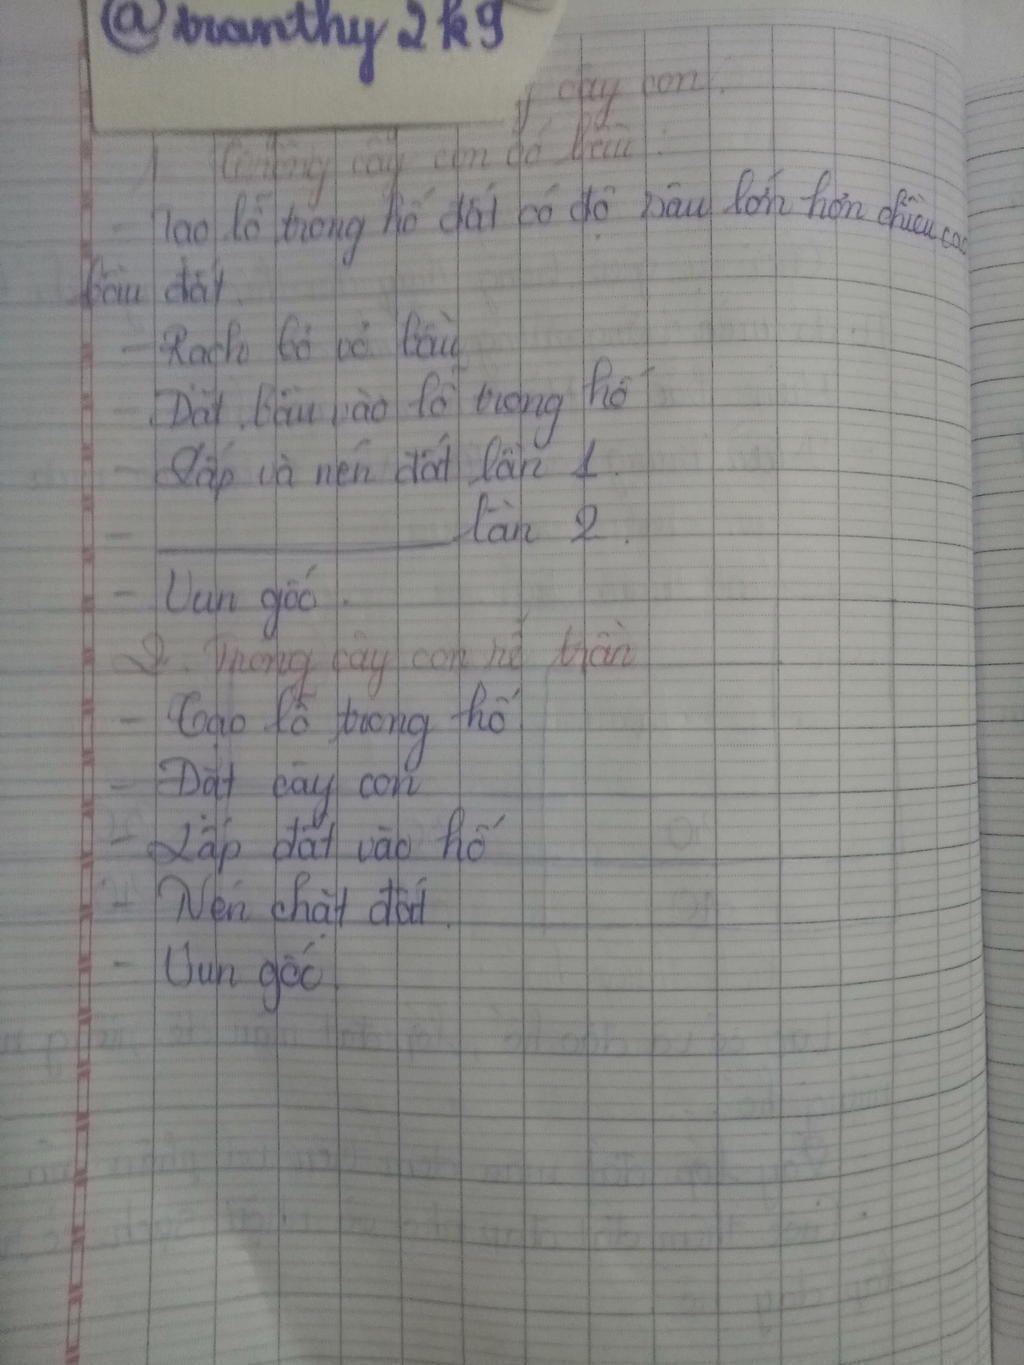 @tranthy2k9
cây con.
1 Trồng cây con có bầu:
- Tạo lỗ trong hố đất có độ sâu lớn hơn chiều cao
bầu đất.
- Rạch bỏ vỏ bầu
- Đặt bầu vào lỗ trong hố
- Lấp và nén đất lần 1.
- ________ lần 2.
- Vun gốc.
2. Trồng cây con rễ trần
- Tạo lỗ trong hố
- Đặt cây con
- Lấp đất vào hố
- Nén chặt đất.
- Vun gốc.